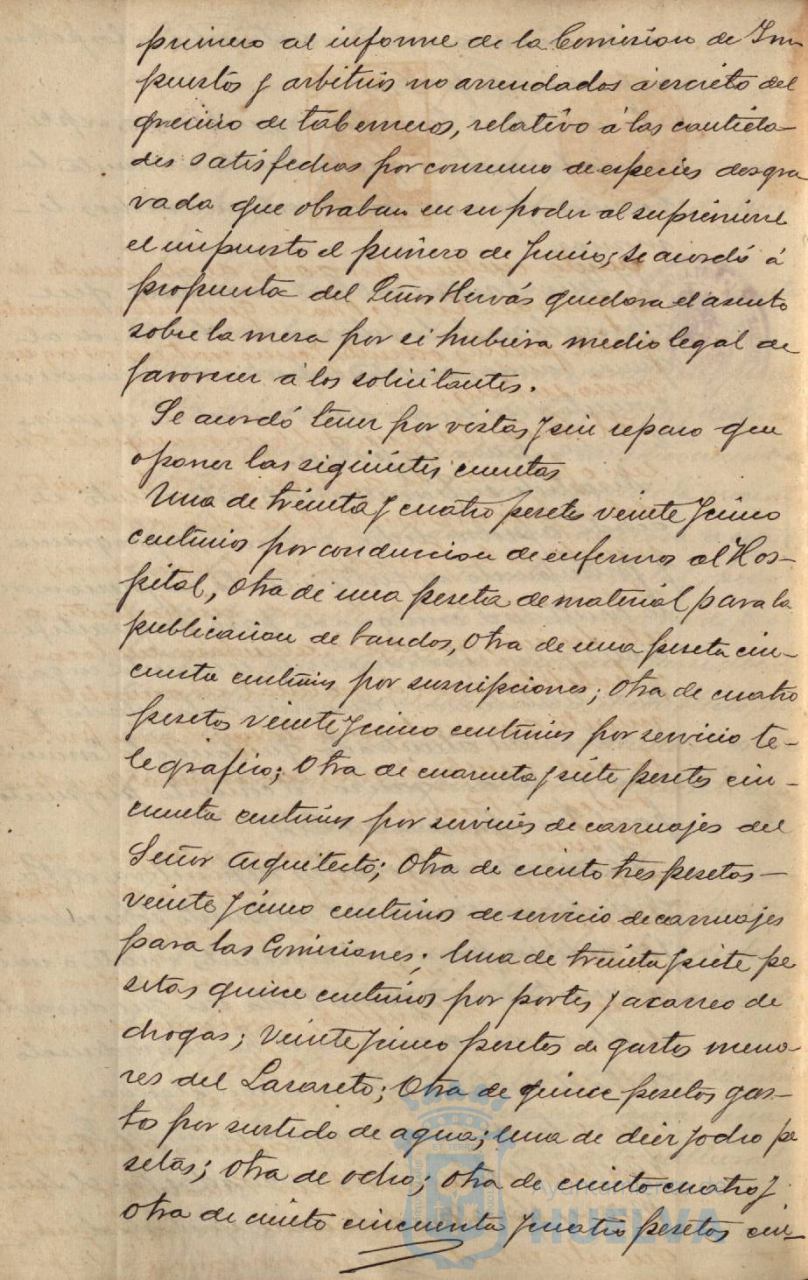 primero al informe de la Comision de Im-
puestos y arbitrios no arrendados á escrito del
gremio de taberneros, relativo á las cantida-
des satisfechas por consumo de especies desgra
vada que obraban en su poder al suprimirse
el impuesto el primero de Junio; se acordó á
propuesta del Señor Hervás quedara el asunto
sobre la mesa por si hubiera medio legal de
favorecer á los solicitantes.
Se acordó tener por vistas y sin reparo que
oponer las siguientes cuentas
Una de treinta y cuatro pesetas veinte y cinco
centimos por conduccion de enfermos al Hos-
pital, Otra de una peseta de material para la
publicacion de bandos, Otra de una peseta cin-
cuenta centimos por suscripciones; Otra de cuatro
pesetas veinte y cinco centimos por servicio te-
legrafico; Otra de cuarenta y siete pesetas cin-
cuenta centimos por servicios de carruajes del
Señor Arquitecto; Otra de ciento tres pesetas
veinte y cinco centimos de servicio de carruajes
para las Comisiones; Una de treinta y siete pe
setas quince centimos por portes y acarreo de
drogas; Veinte y cinco pesetas de gastos meno
res del Lazareto; Otra de quince pesetas gas-
tos por surtido de agua; Una de diez y ocho pe
setas; Otra de ocho; Otra de ciento cuatro y
Otra de ciento cincuenta y cuatro pesetas cin-
HUELVA